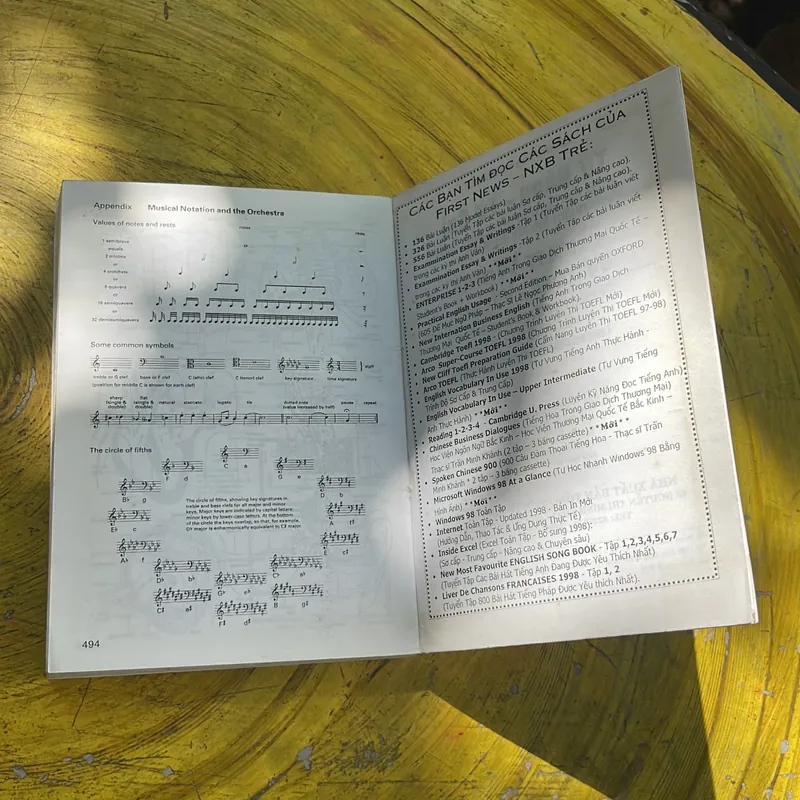 Appendix Musical Notation and the Orchestra
Values of notes and rests
notes
rests
1 semibreve
equals
2 minims
or
4 crotchets
or
8 quavers
or
16 semiquavers
or
32 demisemiquavers
Some common symbols
treble or G clef bass or F clef C (alto) clef C (tenor) clef key signature time signature
staff
(position for middle C is shown for each clef)
sharp (single & double) flat (single & double) natural staccato legato tie dotted notes (value increased by half) pause repeat
The circle of fifths
C a
F d
G e
B♭ g
D b
E♭ c
A f♯
A♭ f
E c♯
D♭ b♭
G♭ e♭
C♭ a♭
C♯ a♯
F♯ d♯
B g♯
The circle of fifths, showing key signatures in
treble and bass clefs for all major and minor
keys. Major keys are indicated by capital letters;
minor keys by lower-case letters. At the bottom
of the circle the keys overlap, so that, for example,
D♭ major is enharmonically equivalent to C♯ major.
494
CÁC BẠN TÌM ĐỌC CÁC SÁCH CỦA
FIRST NEWS - NXB TRẺ:
• 136 Bài Luận (136 Model Essays)
• 326 Bài Luận (Tuyển Tập các bài luận Sơ cấp, Trung cấp & Nâng cao).
• 556 Bài Luận (Tuyển Tập các bài luận Sơ cấp, Trung cấp & Nâng cao).
• Examination Essay & Writings -Tập 1 (Tuyển Tập các bài luận viết
trong các kỳ thi Anh Văn)
• Examination Essay & Writings -Tập 2 (Tuyển Tập các bài luận viết
trong các kỳ thi Anh Văn) **Mới**
• ENTERPRISE 1-2-3 (Tiếng Anh Trong Giao Dịch Thương Mại Quốc Tế –
Student's Book + Workbook) **Mới**
• Practical English Usage - Second Edition – Mua Bản quyền OXFORD
(605 Đề Mục Ngữ Pháp – Thạc Sĩ Lê Ngọc Phương Anh)
• New Internation Business English (Tiếng Anh Trong Giao Dịch
Thương Mại Quốc Tế – Student's Book & Workbook).
• Cambridge Toefl 1998 - (Chương Trình Luyện Thi TOEFL Mới)
• Arco Super-Course TOEFL 1998 (Chương Trình Luyện Thi TOEFL Mới)
• New Cliff Toefl Preparation Guide (Cẩm Nang Luyện Thi TOEFL 97-98)
• Arco TOEFL (Thực Hành Luyện Thi TOEFL)
• English Vocabulary In Use 1998 (Từ Vựng Tiếng Anh Thực Hành -
Trình Độ Sơ Cấp & Trung Cấp)
• English Vocabulary In Use – Upper Intermediate (Từ Vựng Tiếng
Anh Thực Hành) **Mới**
• Reading 1-2-3-4 - Cambridge U. Press (Luyện Kỹ Năng Đọc Tiếng Anh)
• Chinese Business Dialogues (Tiếng Hoa Trong Giao Dịch Thương Mại)
Học Viện Ngôn Ngữ Bắc Kinh – Học Viện Thương Mại Quốc Tế Bắc Kinh –
Thạc sĩ Trần Minh Khánh (2 tập – 3 băng cassette) **Mới**
• Spoken Chinese 900 (900 Câu Đàm Thoại Tiếng Hoa - Thạc sĩ Trần
Minh Khánh * 2 tập – 3 băng cassette)
• Microsoft Windows 98 At a Glance (Tự Học Nhanh Windows 98 Bằng
Hình Ảnh) **Mới**
• Windows 98 Toàn Tập
• Internet Toàn Tập - Updated 1998 - Bản In Mới
(Hướng Dẫn, Thao Tác & Ứng Dụng Thực Tế)
• Inside Excel (Excel Toàn Tập - Bổ sung 1998):
(Sơ cấp - Trung cấp - Nâng cao & Chuyên sâu)
• New Most Favourite ENGLISH SONG BOOK - Tập 1,2,3,4,5,6,7
(Tuyển Tập Các Bài Hát Tiếng Anh Đang Được Yêu Thích Nhất).
• Liver De Chansons FRANCAISES 1998 - Tập 1, 2
(Tuyển Tập 800 Bài Hát Tiếng Pháp Được Yêu thích Nhất).